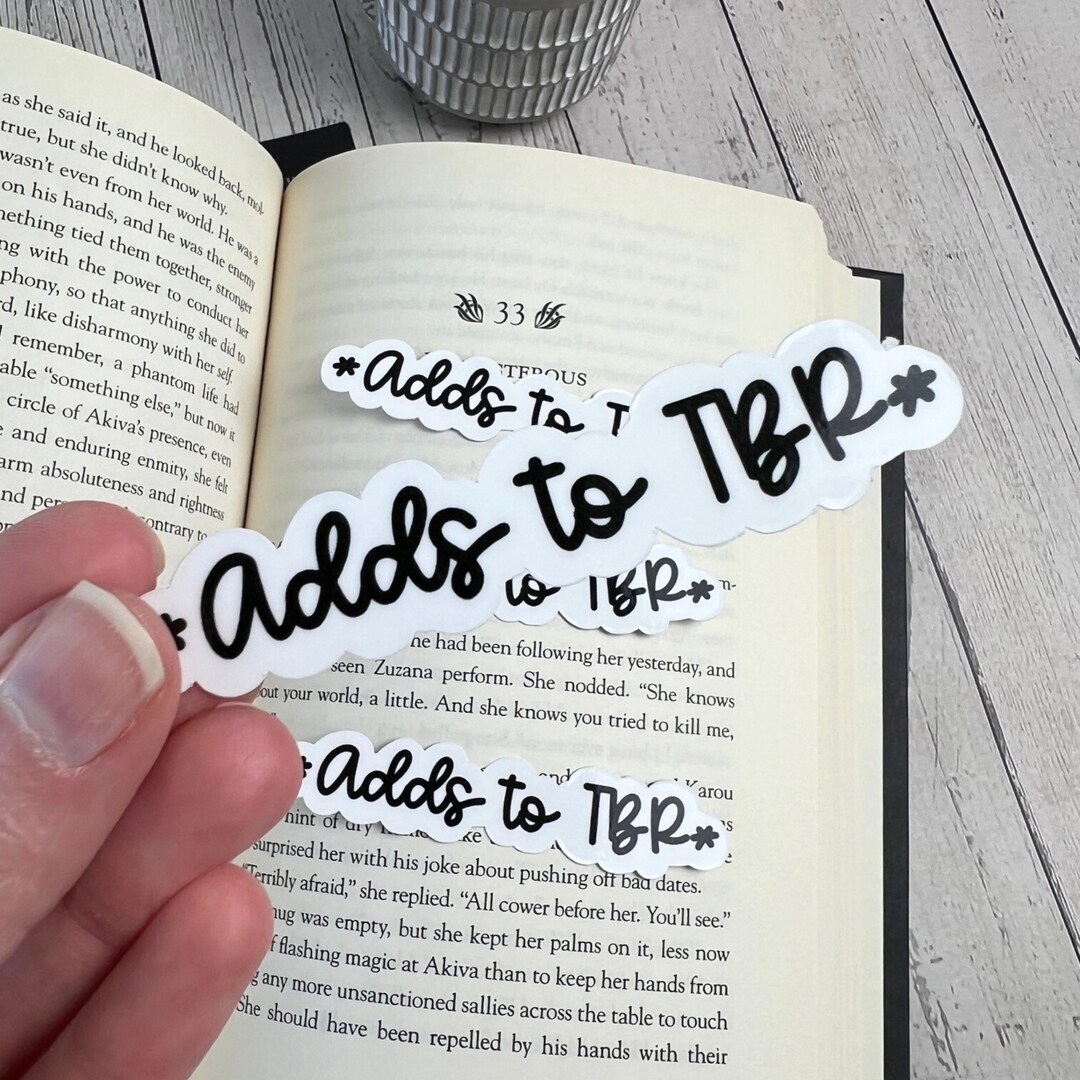 as she said it, and he looked back, mol-
true, but she didn't know why.
wasn't even from her world. He was a
on his hands, and he was the enemy
mething tied them together, stronger
ng with the power to conduct her
phony, so that anything she did to
rd, like disharmony with her self.
remember, a phantom life had
able “something else,” but now it
circle of Akiva's presence, even
e and enduring enmity, she felt
arm absoluteness and rightness
nd per
contrary to
33
*Adds to T
*Adds to TBR*
to TBR*
he had been following her yesterday, and
seen Zuzana perform. She nodded. “She knows
out your world, a little. And she knows you tried to kill me,
*Adds to TBR*
and Karou
hint of dry
surprised her with his joke about pushing off bad dates.
“Terribly afraid,” she replied. “All cower before her. You'll see.”
mug was empty, but she kept her palms on it, less now
f flashing magic at Akiva than to keep her hands from
g any more unsanctioned sallies across the table to touch
She should have been repelled by his hands with their